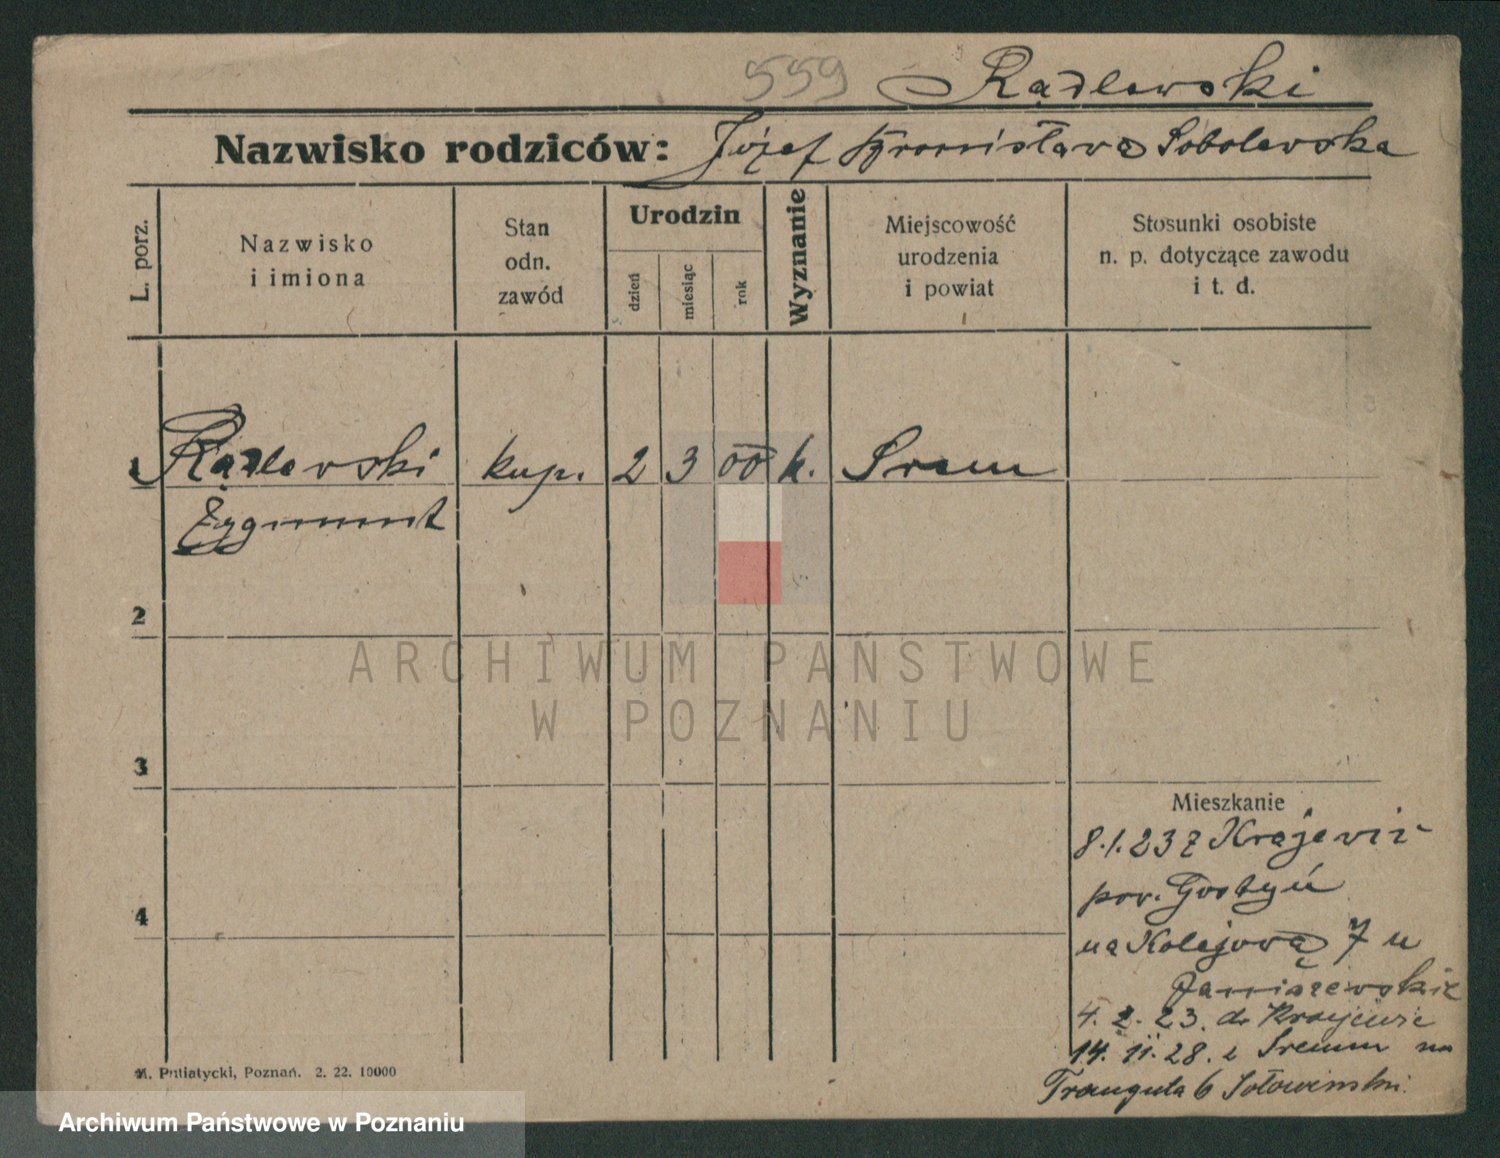 559 Rądlewski
Nazwisko rodziców: Józef Bronisława Sobolewska
L. porz.
Nazwisko
i imiona
Stan
odn.
zawód
Urodzin
dzień
miesiąc
rok
Wyznanie
Miejscowość
urodzenia
i powiat
Stosunki osobiste
n. p. dotyczące zawodu
i t. d.
1 Rądlewski kup. 2 3 00 k. Srem
Zygmunt
2
3
4
Mieszkanie
8.1.23 z Krajewic
pow. Gostyń
na Kolejową 7 u
4.2.23. do Krajewic
14.11.28. z Sremu na
6
M. Putiatycki, Poznań. 2. 22. 10000
ARCHIWUM PAŃSTWOWE
W POZNANIU
Archiwum Państwowe w Poznaniu